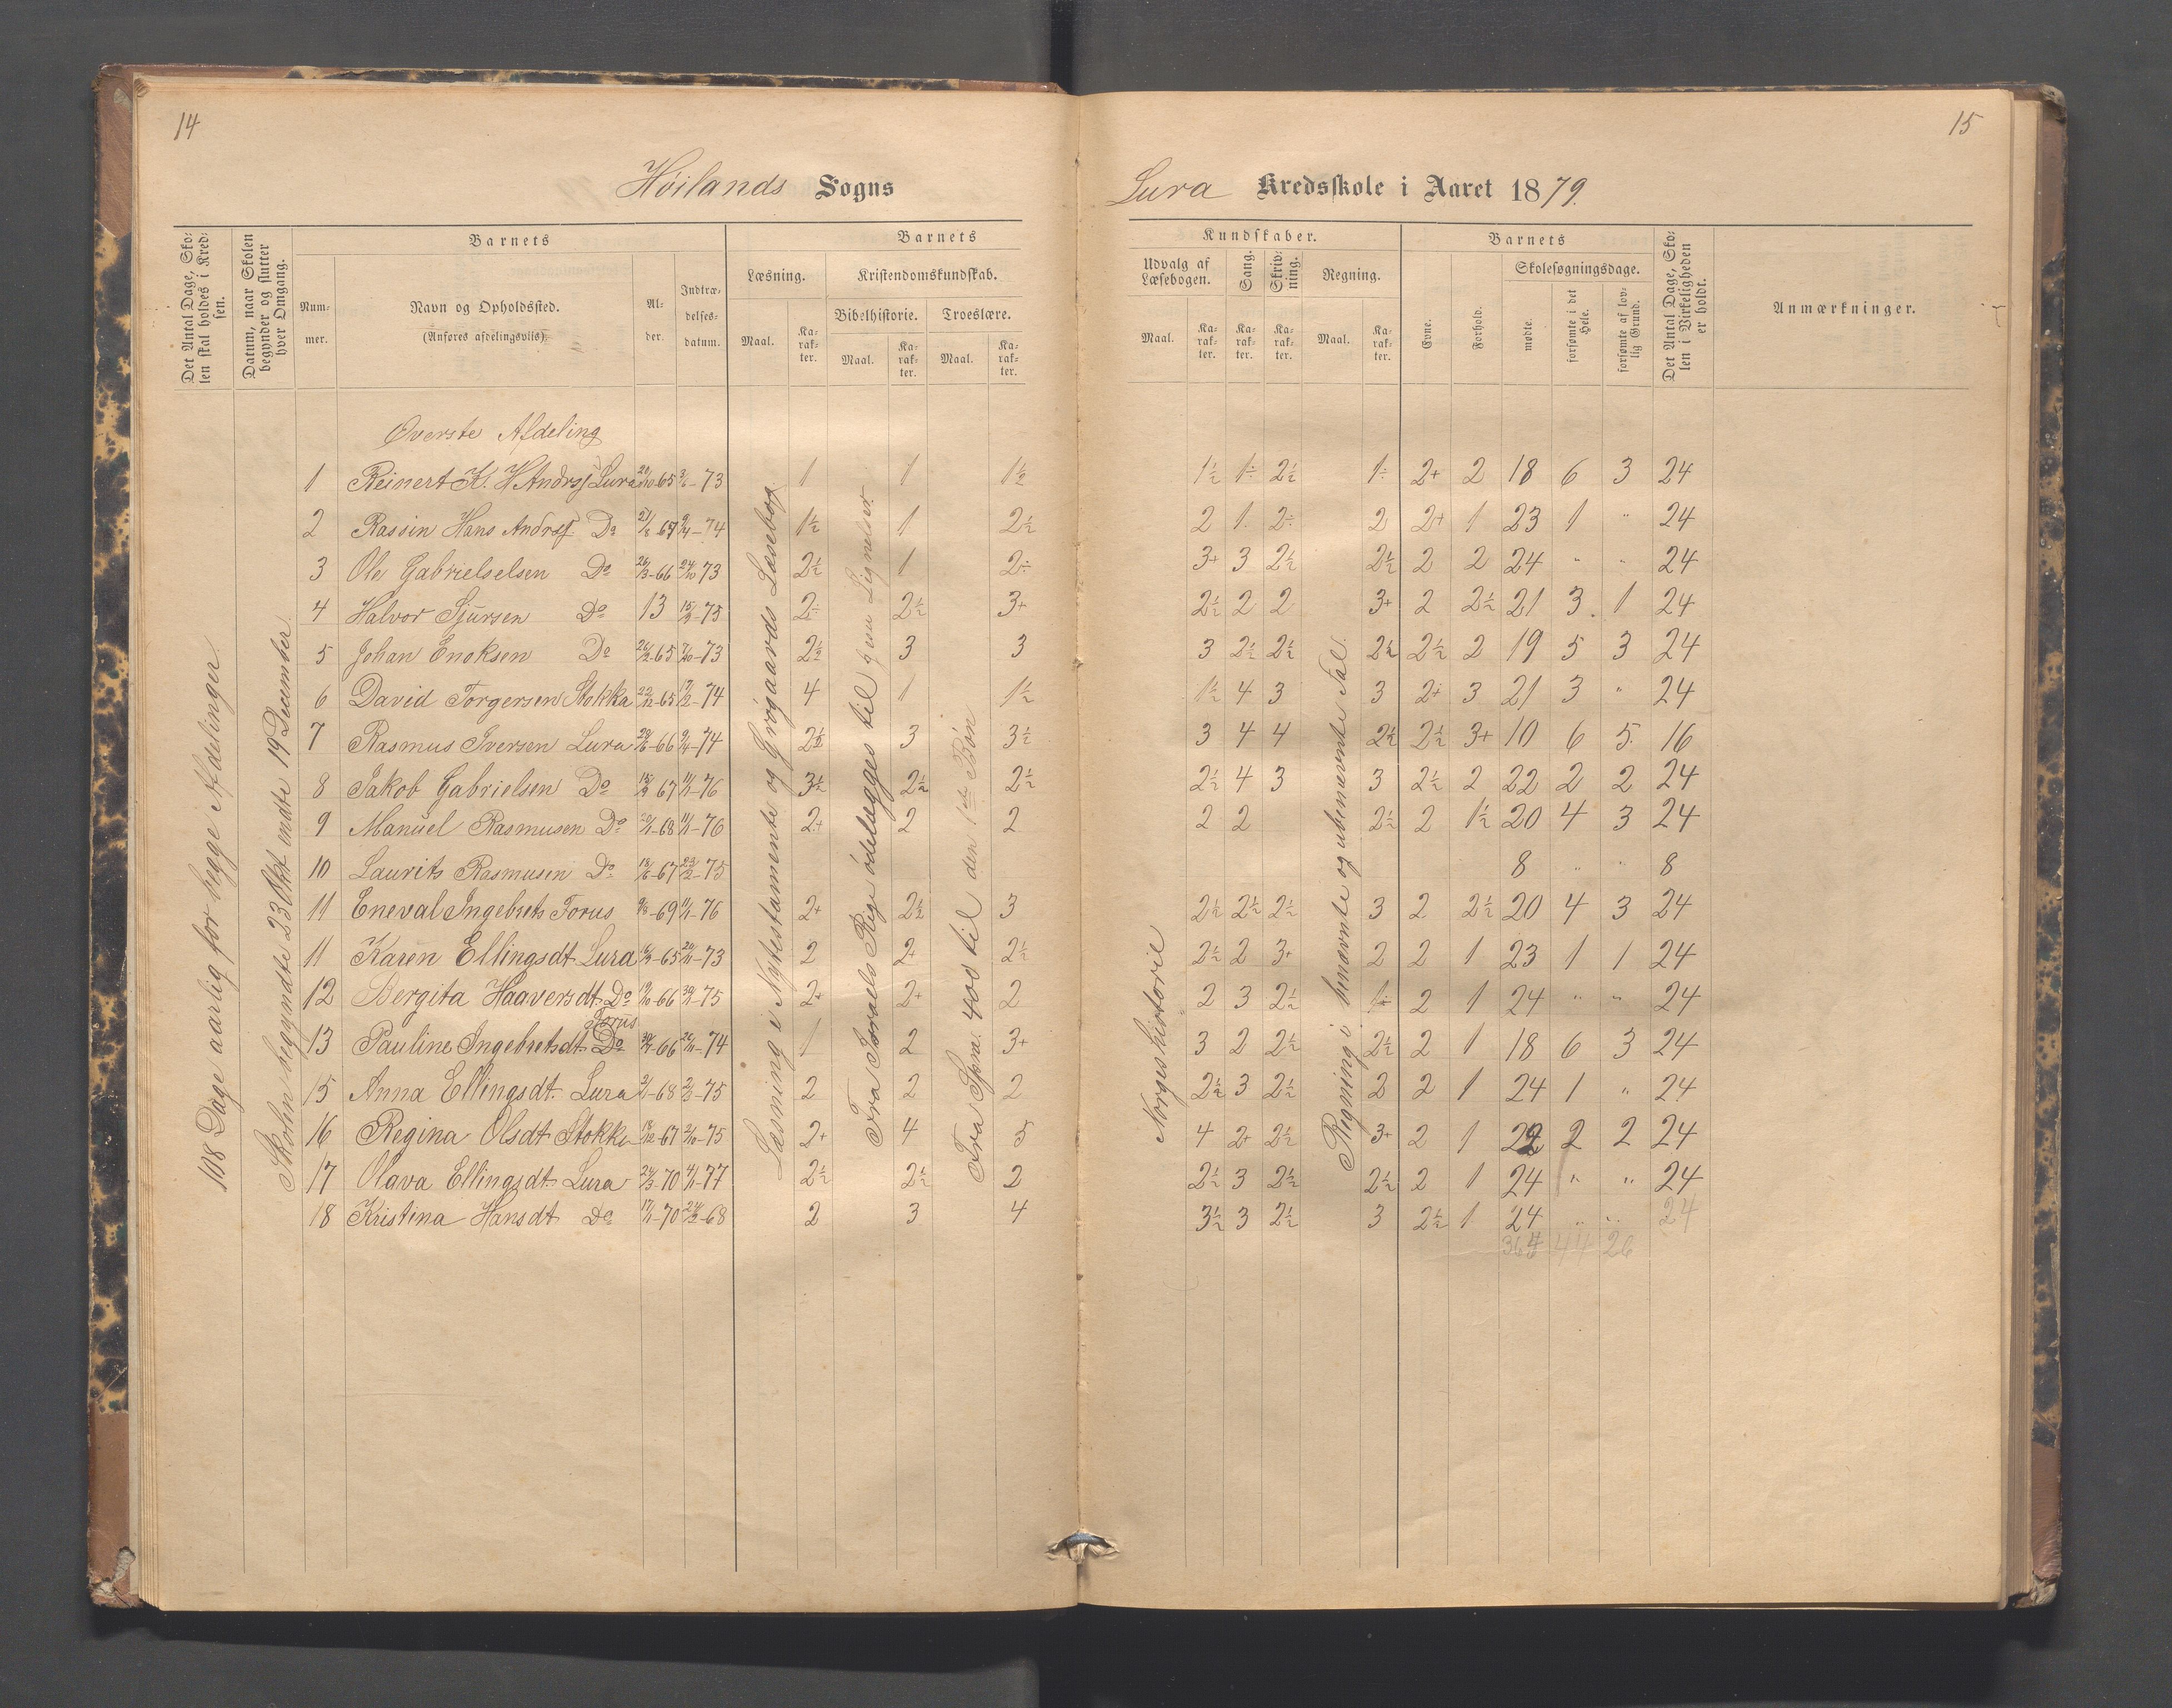 14
15
Höilands Sogns
Lura Kredsskole i Aaret 1879.
Det Antal Dage, Skolen skal holdes i Kredsen.
Datum, naar Skolen begynder og slutter hver Omgang.
Barnets
Nummer.
Navn og Opholdssted.
(Anføres afdelingsviis).
Alder.
Indtrædelsesdatum.
Barnets
Læsning.
Maal.
Karakter.
Kristendomskundskab.
Bibelhistorie.
Maal.
Karakter.
Troeslære.
Maal.
Karakter.
Kundskaber.
Udvalg af Læsebogen.
Maal.
Karakter.
Sang.
Karakter.
Skrivning.
Karakter.
Regning.
Maal.
Karakter.
Barnets
Evne.
Forhold.
Skolesøgningsdage.
mødte.
forsømte i det Hele.
forsømte af lovlig Grund.
Det Antal Dage, Skolen i Virkeligheden er holdt.
Anmærkninger.
108 Dage aarlig for begge Afdelinger
Skolen begyndte 23 Okt endte 19 December
Læsning i Nytestamente og Grøgaards Læsebog
Fra Israels Rige ödelægges til Jesu Lignelser
Fra Spm. 400 til den 1ste Bön
Norgeshistorie
Regning i benævnte og ubenævnte Tal.
Överste Afdeling
1 Reinert K. H Andrsj Lura 20/10-65 3/6-73 1 1 1½ 1½ 1÷ 2½ 1÷ 2+ 2 18 6 3 24
2 Rassin Hans Andrsj Do 21/8-67 9/4-74 1½ 1 2½ 2 1 2÷ 2 2+ 1 23 1 " 24
3 Ole Gabrielselsen Do 26/3-66 24/10-73 2½ 1 2÷ 3+ 3 2½ 2½ 2 2 24 " " 24
4 Halvor Sjursen Do 13 15/9-75 2÷ 2½ 3+ 2½ 2 2 3+ 2 2½ 21 3 1 24
5 Johan Enoksen Do 26/2-65 7/10-73 2½ 3 3 3 2½ 2½ 2½ 2½ 2 19 5 3 24
6 David Torgersen Stokka 22/12-65 17/2-74 4 1 1½ 1½ 4 3 3 2+ 3 21 3 " 24
7 Rasmus Iversen Lura 28/6-66 9/4-74 2½ 3 3½ 3 4 4 2½ 2½ 3+ 10 6 5 16
8 Jakob Gabrielsen Do 18/9-67 11/1-76 3½ 2½ 2½ 2½ 4 3 3 2½ 2 22 2 2 24
9 Manuel Rasmusen Do 20/1-68 11/1-76 2+ 2 2 2 2 2½ 2 1½ 20 4 3 24
10 Laurits Rasmusen Do 18/6-67 23/2-75 8 " " 8
11 Eneval Ingebrets Forus 9/8-69 11/1-76 2+ 2½ 3 2½ 2½ 2½ 3 2 2½ 20 4 3 24
11 Karen Ellingsdt Lura 16/9-65 20/11-73 2 2+ 2½ 2½ 2 3+ 2 2 1 23 1 1 24
12 Bergita Haaversdt. Do 19/10-66 30/1-75 2+ 2+ 2 2 3 2½ 1÷ 2 1 24 " " 24
Forus
13 Pauline Ingebretsdt. Do 30/1-66 26/11-74 1 2 3+ 3 2 2½ 2½ 2 1 18 6 3 24
15 Anna Ellingsdt. Lura 2/1-68 2/3-75 2 2 2 2½ 3 2½ 2 2 1 24 1 " 24
16 Regina Olsdt Stokke 18/12-67 2/10-75 2+ 4 5 4 2+ 2½ 3+ 2 1 22 2 2 24
17 Olava Ellingsdt. Lura 24/3-70 4/1-77 2½ 2½ 2 2½ 3 2½ 2½ 2 1 24 " " 24
18 Kristina Hansdt Do 17/1-70 24/2-68 2 3 4 3½ 3 2½ 3 2½ 1 24 " " 24
364 44 26